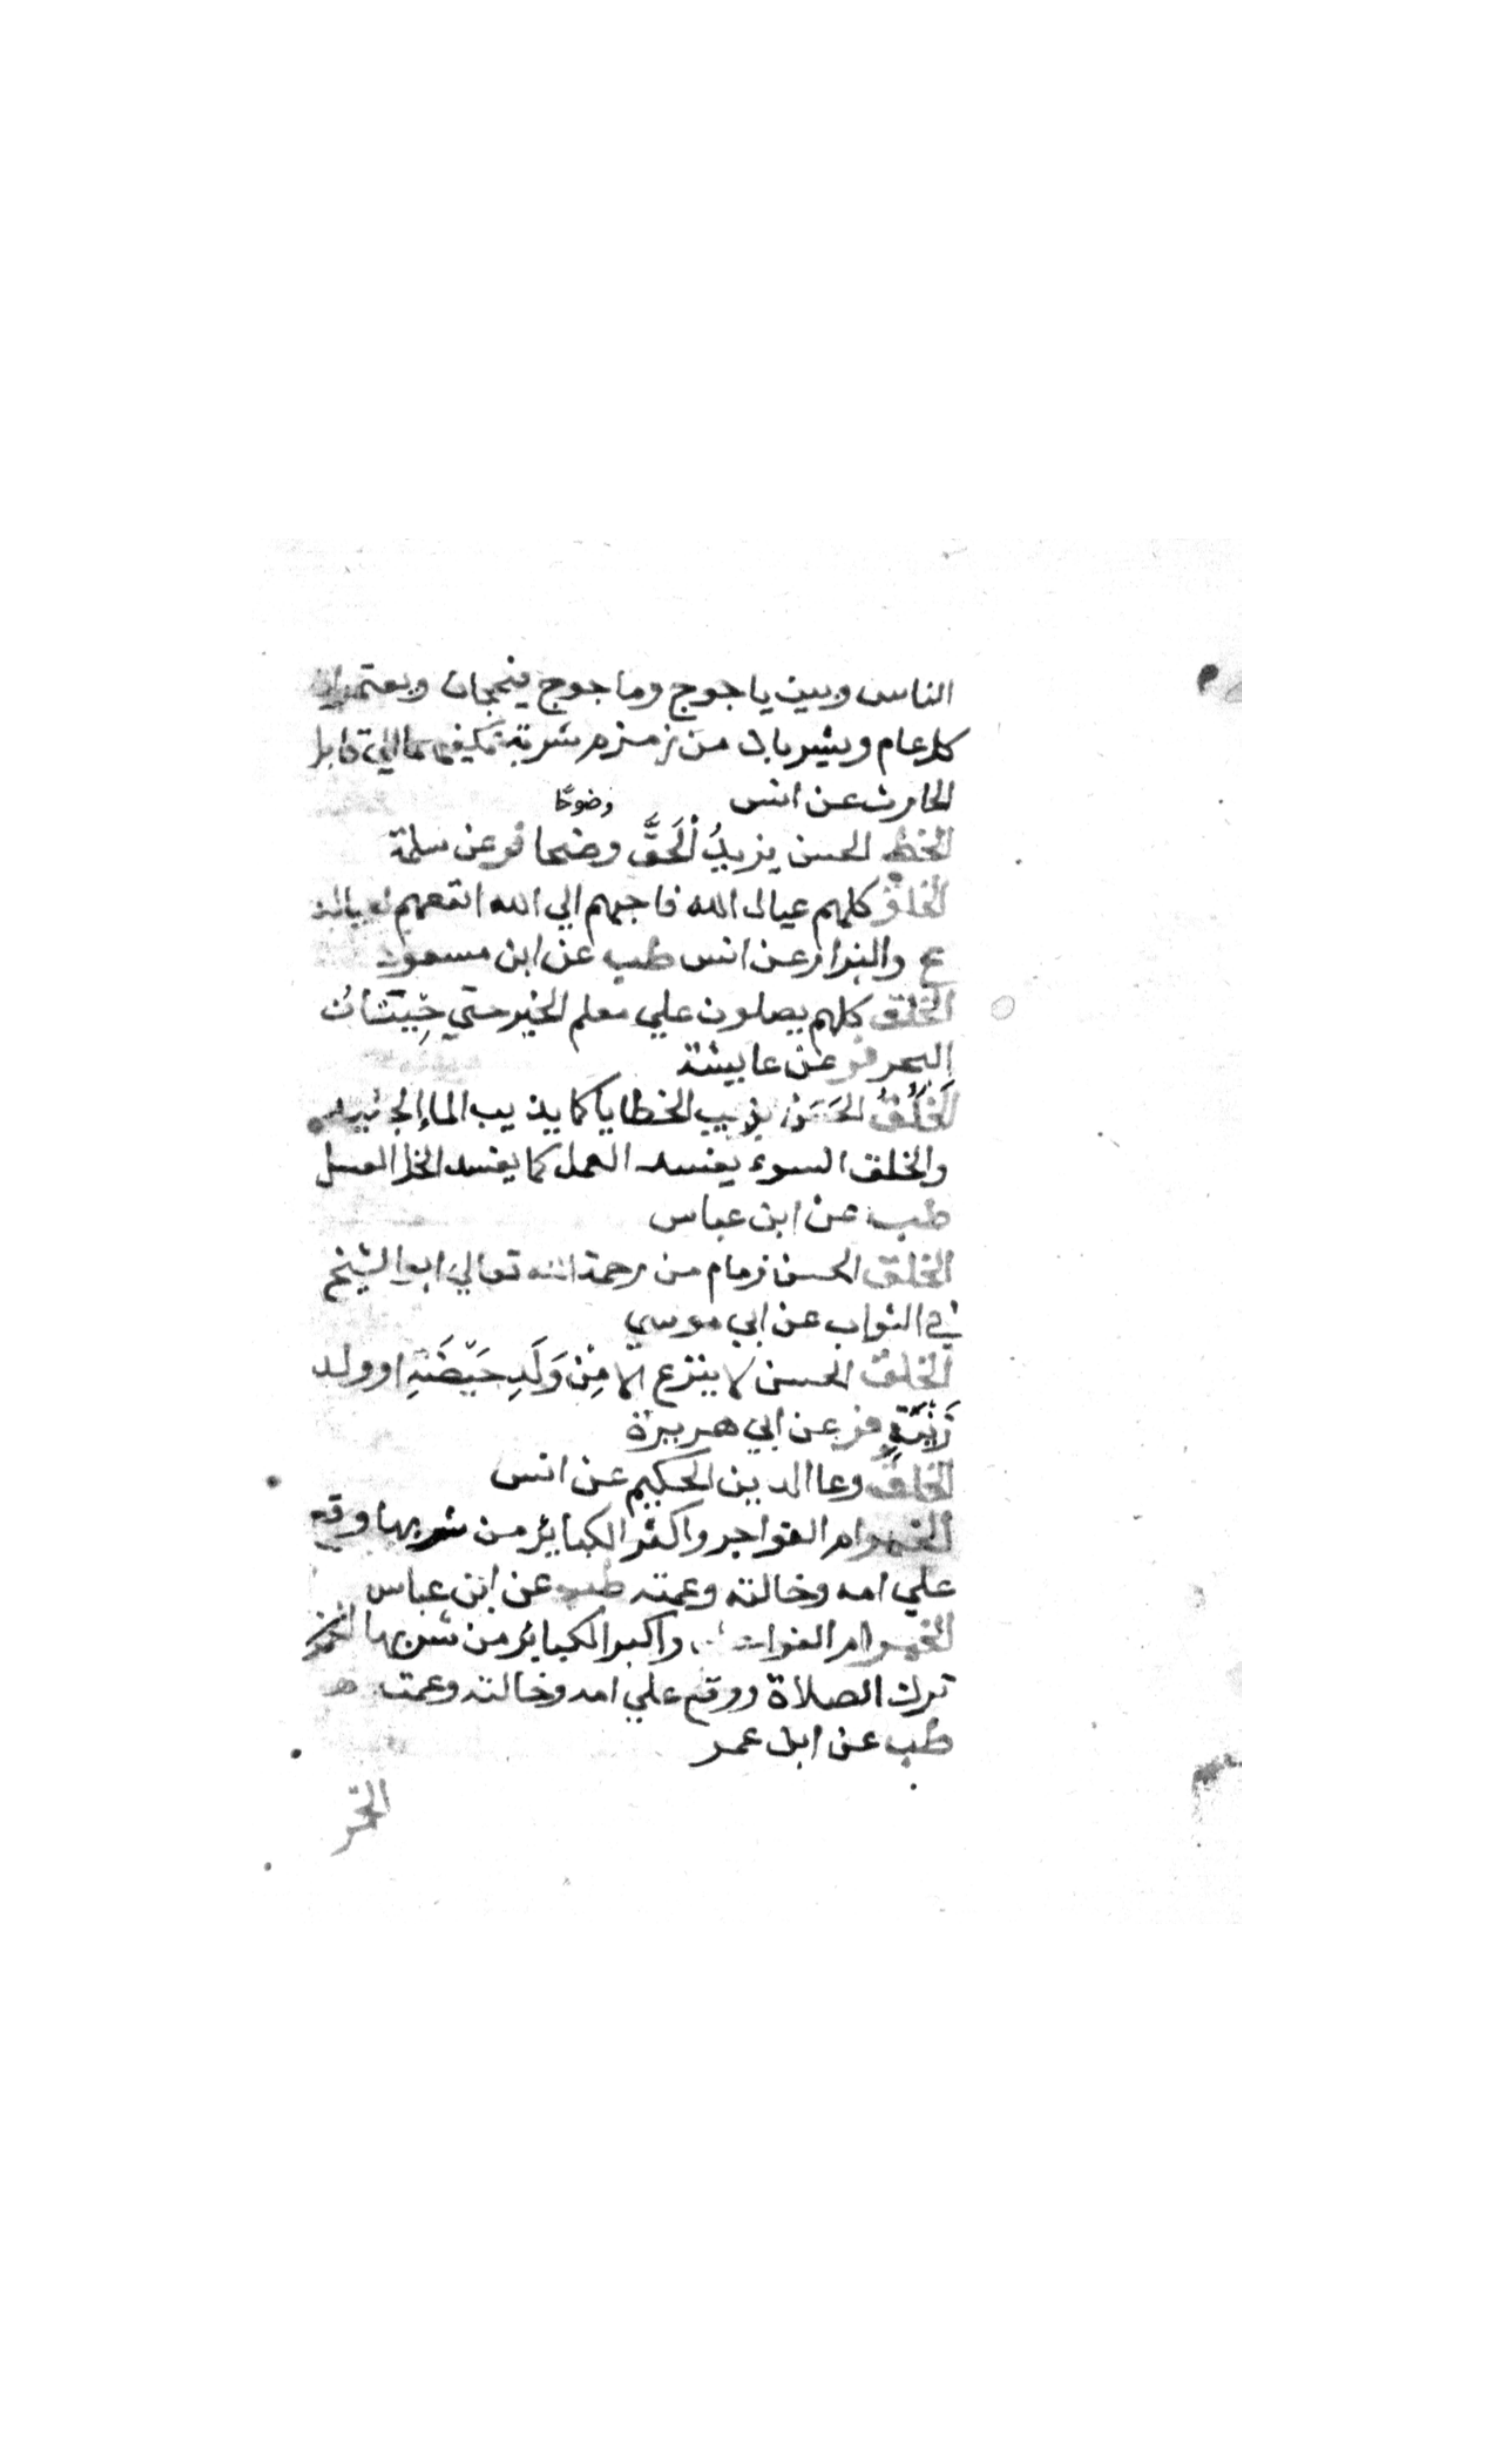 الناس وبين ياجوج وماجوج فيحجان ويعتمران
كل عام ويشربان من زمزم شربة تكفيهما الي قابل
الحارث عن انس
وضوحًا
الخط الحسن يزيدُ الحَقَّ وضحا فر عن سلمة
الخلق كلهم عيال الله فاحبهم الي الله انفعهم لعياله
ع والبزار عن انس طب عن ابن مسعود
الخلق كلهم يصلون علي معلم الخير حتي حِيْتَانُ
البحر فر عن عايشة
الخُلُقُ الحَسَنُ يذيب الخطايا كما يذيب الماء الجليد
والخلق السوء يفسد العمل كما يفسد الخل العسل
طب عن ابن عباس
الخلق الحسن زمام من رحمة الله تعالي ابو الشيخ
في الثواب عن ابي موسي
الخلق الحسن لا ينزع الا مِنْ وَلَدِ حَيْضَةٍ او ولد
زَنْيَةٍ فر عن ابي هريرة
الخلق وعا الدين الحكيم عن انس
الخمر ام الفواحر واكبر الكباير من شربها وقع
علي امه وخالته وعمته طب عن ابن عباس
الخمر ام الفواحش واكبر الكباير من شرب الخمر
ترك الصلاة ووقع علي امه وخالته وعمته
طب عن ابن عمر
الخمر